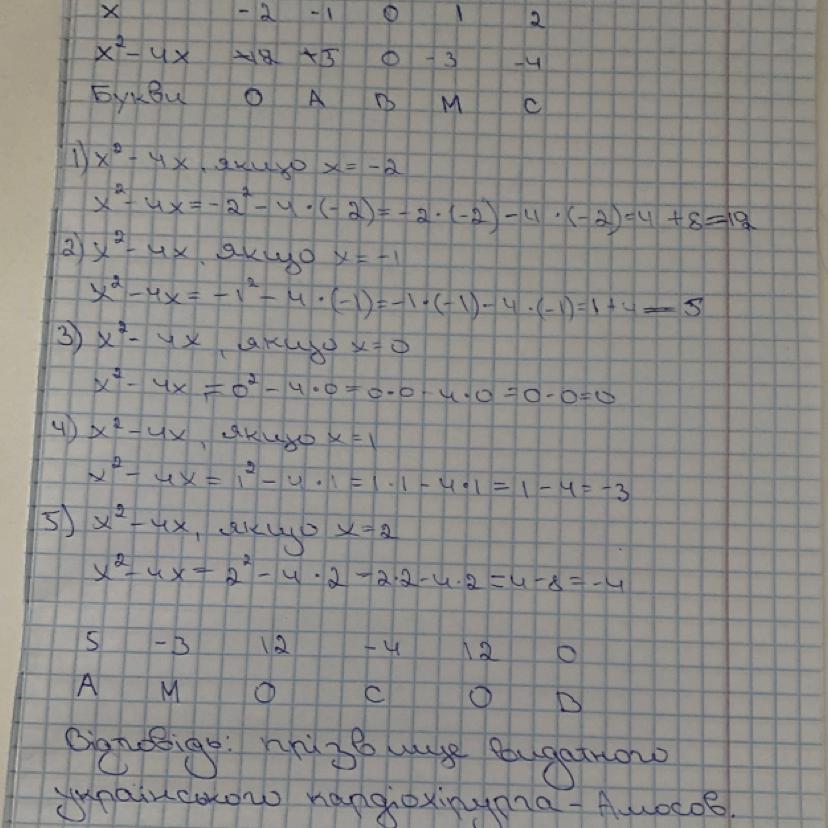 x -2 -1 0 1 2
x² - 4x +12 +5 0 -3 -4
Букви О А В М С
1) x² - 4x, якщо x = -2
x² - 4x = -2² - 4 · (-2) = -2 · (-2) - 4 · (-2) = 4 + 8 = 12
2) x² - 4x, якщо x = -1
x² - 4x = -1² - 4 · (-1) = -1 · (-1) - 4 · (-1) = 1 + 4 = 5
3) x² - 4x, якщо x = 0
x² - 4x = 0² - 4 · 0 = 0 · 0 - 4 · 0 = 0 - 0 = 0
4) x² - 4x, якщо x = 1
x² - 4x = 1² - 4 · 1 = 1 · 1 - 4 · 1 = 1 - 4 = -3
5) x² - 4x, якщо x = 2
x² - 4x = 2² - 4 · 2 = 2 · 2 - 4 · 2 = 4 - 8 = -4
5 -3 12 -4 12 0
А М О С О В
Відповідь: прізвище видатного
українського кардіохірурга - Амосов.